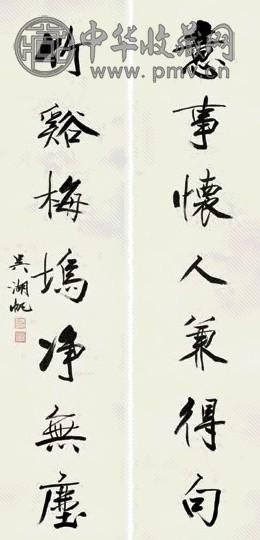 中华收藏网
www.pmv.cn
意事懷人兼得句
竹谿梅塢净無塵
吳湖帆